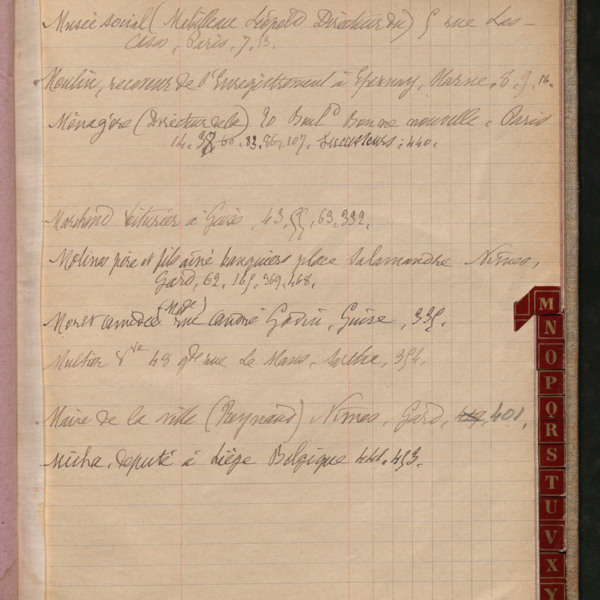 Musée social (Mabilleau Léopold Directeur du) 5 rue Las-
Cases, Paris, 7, 13.
Moulin, receveur de l'Enregistrement à Epernay, Marne, 8, 9, 16.
Ménagère (Directeur de la) 20 Boulᵈ Bonne nouvelle, Paris
14, 60, 83, 86, 107. successeurs: 440.
Marchand voiturier à Guise, 43, 63, 332.
Molines père et fils aîné banquiers place Salamandre Nîmes,
Gard, 62, 165, 369, 468.
(Mᵐᵉ)
Moret rue André Godin, Guise, 335.
48 rue Le Mans, Sarthe, 354.
Maire de la ville (Reynaud) Nîmes, Gard, 401,
Micha, député à Liège Belgique 441, 453.
M
N
O
P
Q
R
S
T
U
V
X
Y